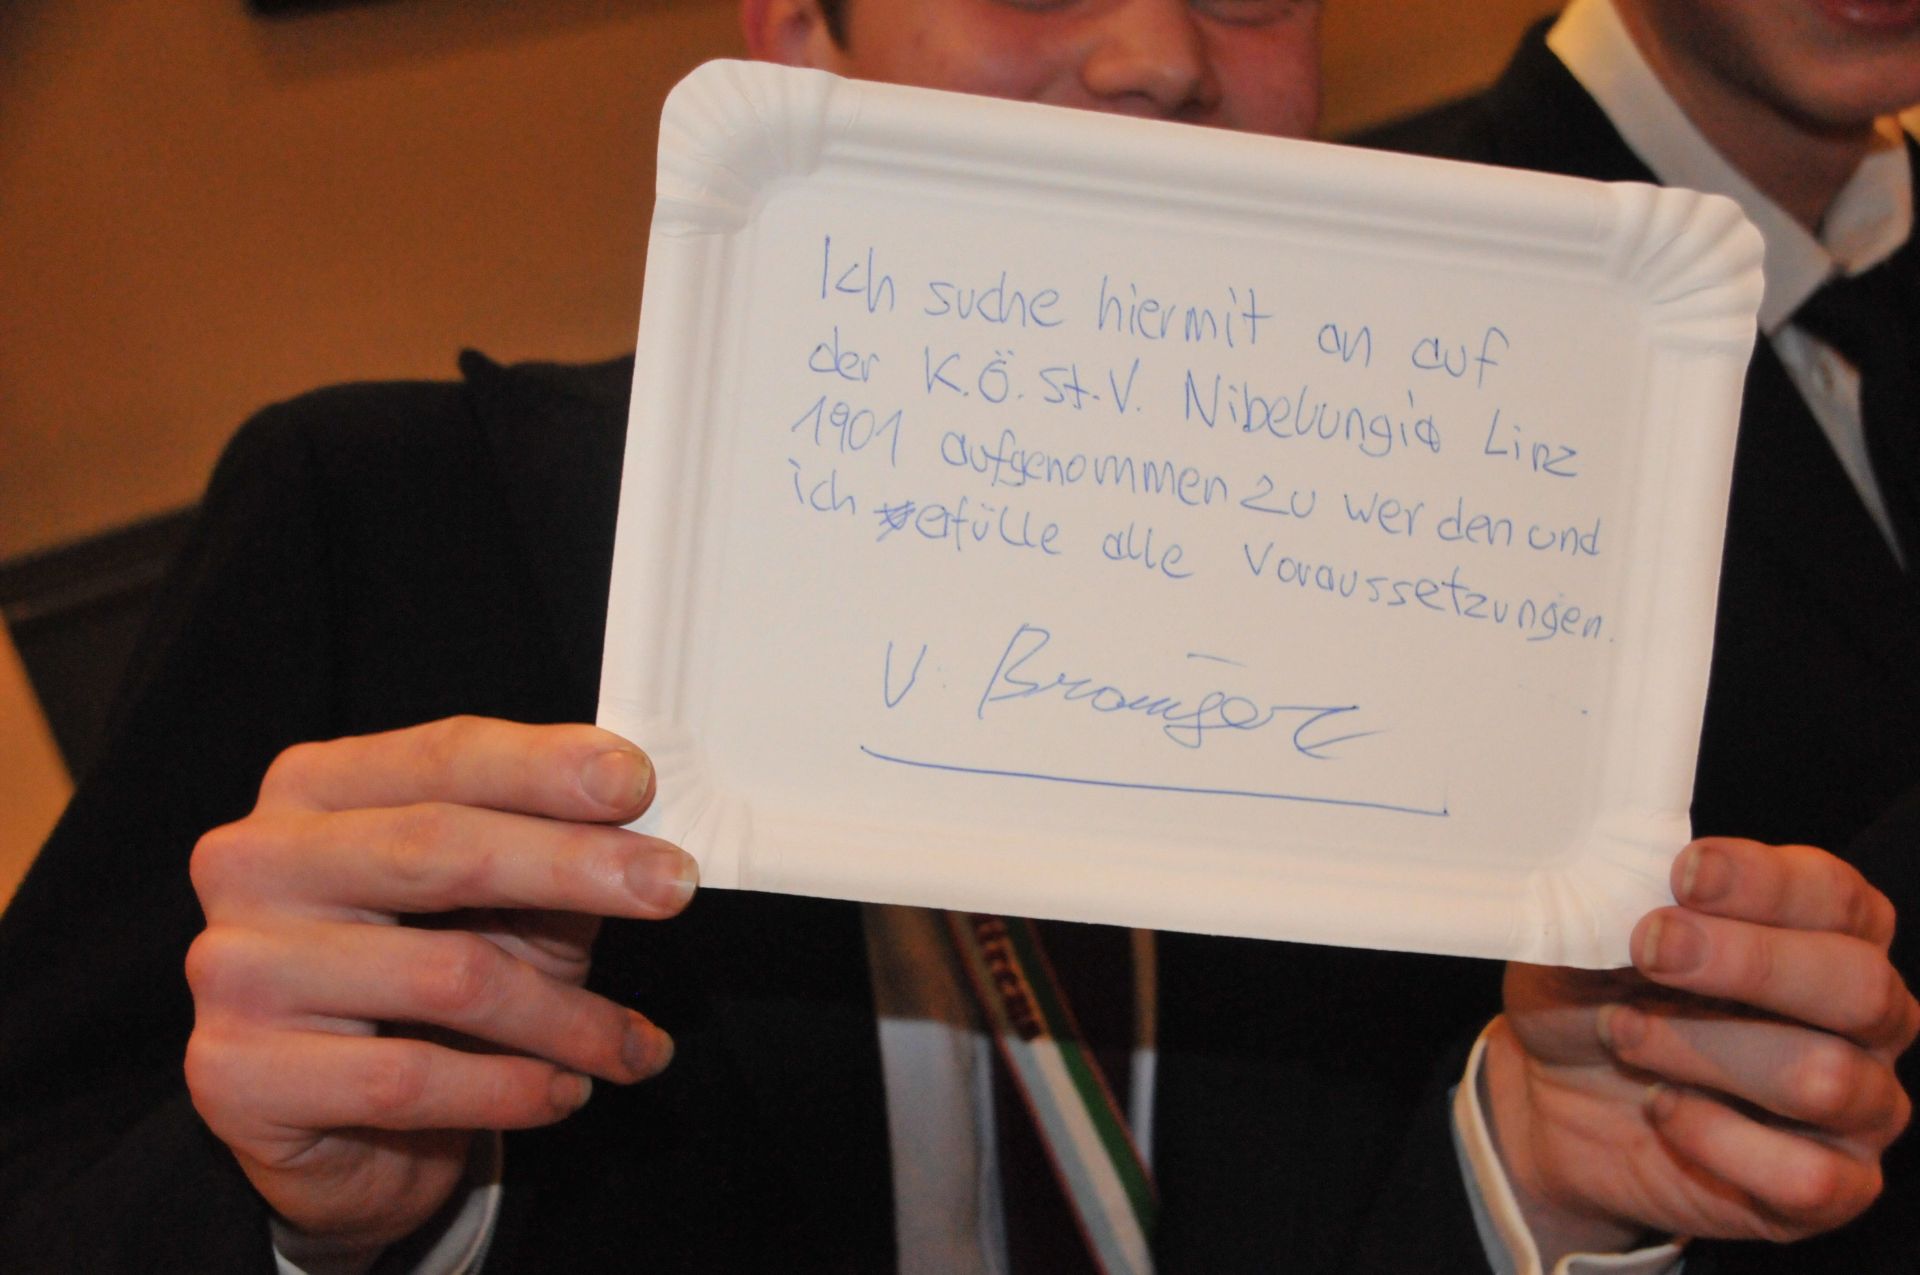 Ich suche hiermit an auf
der K.Ö.St.V. Nibelungia Linz
1901 aufgenommen zu werden und
ich erfülle alle Voraussetzungen.
V.